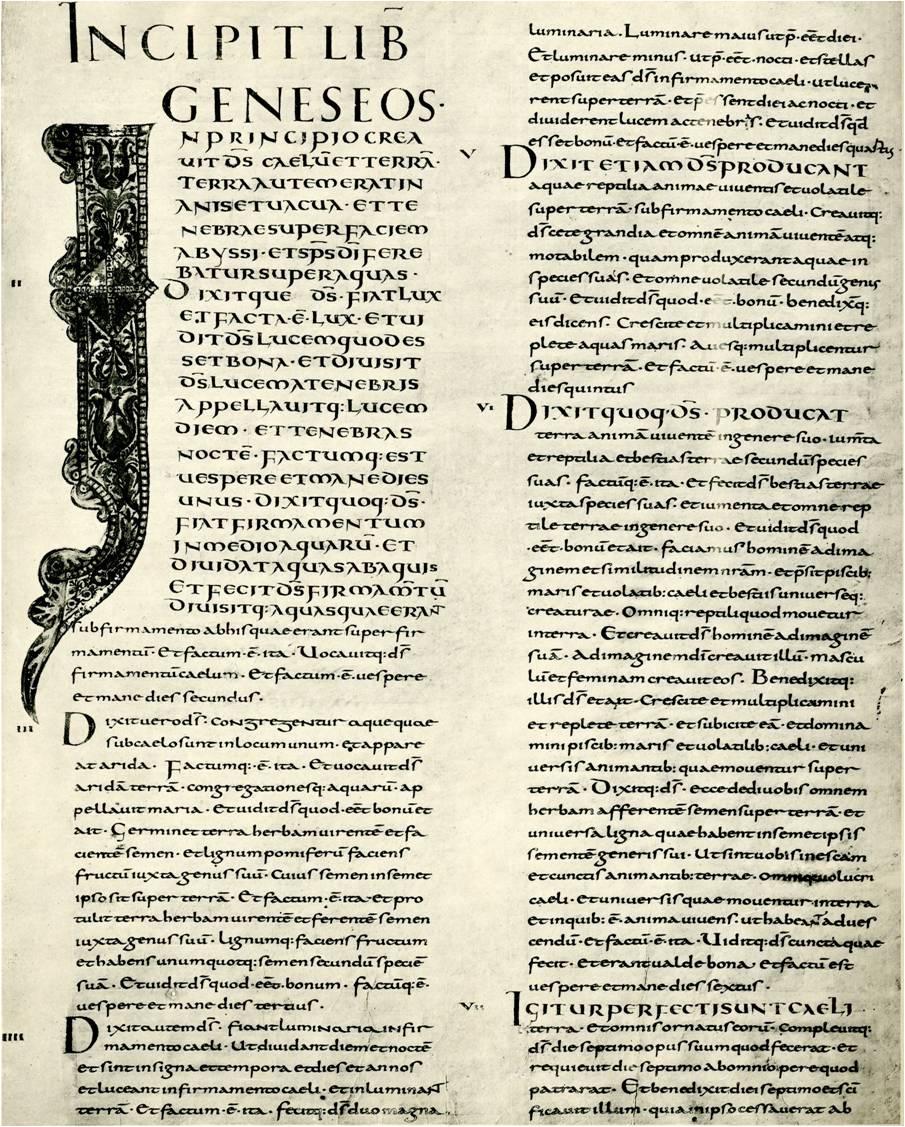 INCIPIT LIB̄
GENESEOS·
N PRINCIPIO CREA
UIT D̄S CAELŪ ET TERRĀ·
TERRA AUTEM ERAT IN
ANIS ET UACUA · ET TE
NEBRAE SUPER FACIEM
ABYSSI · ET SP̄S DĪ FERE
BATUR SUPER AQUAS ·
II
DIXITQUE D̄S · FIAT LUX
ET FACTA · Ē · LUX · ET UI
DIT D̄S LUCEM QUOD ES
SET BONA · ET DIUISIT
D̄S LUCEM A TENEBRIS
APPELLAUITQ: LUCEM
DIEM · ET TENEBRAS
NOCTĒ · FACTUMQ: EST
UESPERE ET MANE DIES
UNUS · DIXIT QUOQ: D̄S ·
FIAT FIRMAMENTUM
IN MEDIO AQUARŪ · ET
DIUIDAT AQUAS AB AQUIS
ET FECIT D̄S FIRMAM̄TŪ
DIUISITQ: AQUAS QUAE ERANT
sub firmamento ab his quae erant super fir
mamentū · Et factum · ē · ita · Uocauitq: d̄s
firmamentū caelum · Et factum · ē · uespere
et mane dies secundus ·
III
Dixit uero d̄s · congregentur aque quae
sub caelo sunt in locum unum · et appare
at arida · Factumq: · ē · ita · Et uocauit d̄s
aridā terrā · congregationesq: aquarū · ap
pellauit maria · Et uidit d̄s quod · eēt bonū et
ait · Germinet terra herbam uirentē et fa
cientē semen · et lignum pomiferū faciens
fructū iuxta genus suū · Cuius semen in semet
ipso sit super terrā · Et factum · ē · ita · et pro
tulit terra herbam uirentē et ferentē semen
iuxta genus suū · lignumq: faciens fructum
et habens unumquotq: semen secundū speciē
suā · Et uidit d̄s quod · eēt · bonum · Factūq: ē ·
uespere et mane dies tertius ·
IIII
Dixit autem d̄s · fiant luminaria in fir
mamento caeli · Ut diuidant diem et noctē
et sint in signa et tempora et dies et annos
et luceant in firmamento caeli · et inluminant
terrā · Et factum · ē · ita · fecitq: d̄s duo magna
luminaria · Luminare maius ut p̄ · eēt diei ·
Et luminare minus · ut p̄ · eēt · nocti · et stellas
et posuit eas d̄s in firmamento caeli · ut luce
rent super terrā · Et p̄ essent diei ac nocti · et
diuiderent lucem ac tenebris · Et uidit d̄s qd
esset bonū · et factū · ē · uespere et mane dies quartus
V
DIXIT ETIAM D̄S PRODUCANT
aquae reptilia animae uiuentis et uolatile
super terrā · sub firmamento caeli · Creauitq:
d̄s cete grandia et omnē animā uiuentē atq:
motabilem · quam produxerant aquae in
species suas · Et omne uolatile secundū genus
suū · Et uidit d̄s quod · eēt · bonū · benedixq:
eis dicens · Crescite et multiplicamini et re
plete aquas maris · Auesq: multiplicentur
super terrā · Et factū · ē · uespere et mane
dies quintus
VI
DIXIT QUOQ· D̄S · PRODUCAT
terra animā uiuentē in genere suo · ium̄ta
et reptilia et bestias terrae secundū species
suas · factūq: ē · ita · Et fecit d̄s bestias terrae
iuxta species suas · et iumenta et omne rep
tile terrae in genere suo · Et uidit d̄s quod
· eēt · bonū et ait · faciamus hominē ad ima
ginem et similitudinem nr̄am · et p̄sit piscib;
maris et uolatib: caeli et bestiis uniuerseq:
creaturae · Omniq: reptili quod mouetur
in terra · Et creauit d̄s hominē ad imaginē
suā · Ad imaginem dī creauit illū · mascu
lū et feminam creauit eos · Benedixitq:
illis d̄s et ait · Crescite et multiplicamini
et replete terrā · et subicite eā · et domina
mini piscib: maris et uolatilib: caeli · et uni
uersis animantib: quae mouentur super
terrā · Dixitq: d̄s · ecce dedi uobis omnem
herbam afferentē semen super terrā · et
uniuersa ligna quae habent in semetipsis
sementē generis sui · Ut sint uobis in escam
et cunctis animantib: terrae · omniq uolucri
caeli · et uniuersis quae mouentur in terra
et in quib: ē · anima uiuens · ut habeant ad ues
cendū · Et factū · ē · ita · Uiditq: d̄s cuncta quae
fecit · Et erant ualde bona et factū est
uespere et mane dies sextus ·
VII
IGITUR PERFECTI SUNT CAELI
terra · Et omnis ornatus eorū · Compleuitq:
d̄s die septimo opus suum quod fecerat · et
requieuit die septimo ab omni opere quod
patrarat · Et benedixit diei septimo et sc̄i
ficauit illum · quia in ipso cessauerat ab